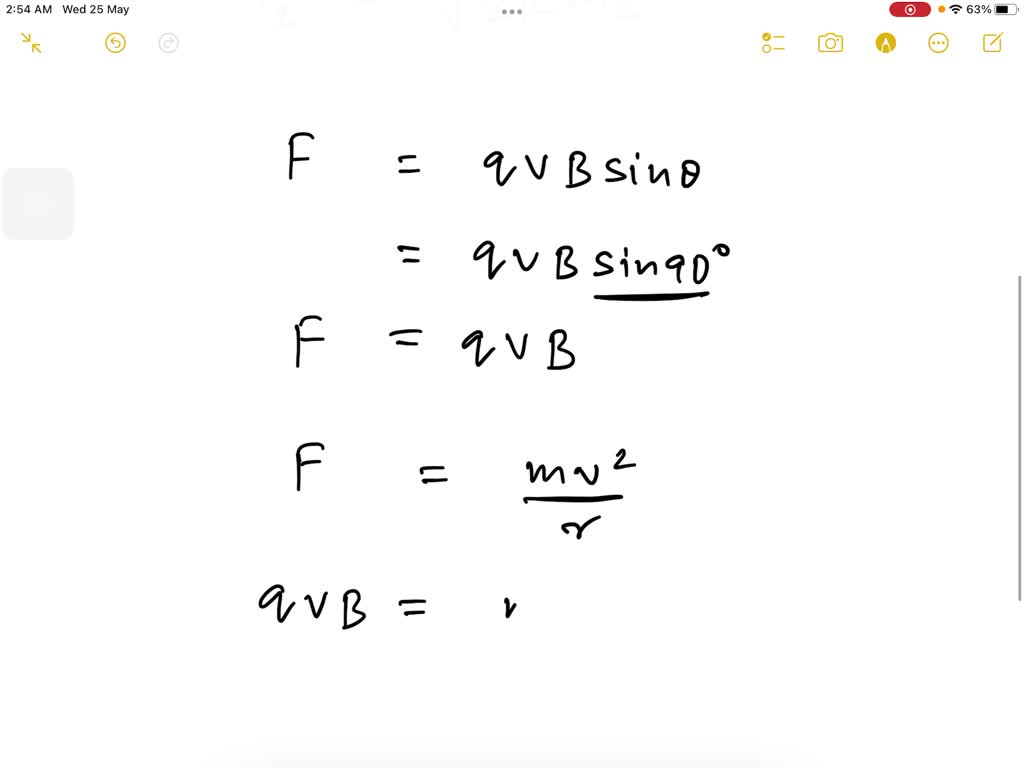 2:54 AM Wed 25 May
63%
F = qvB sinθ
= qvB sin90°
F = qvB
F = mv²/r
qvB =